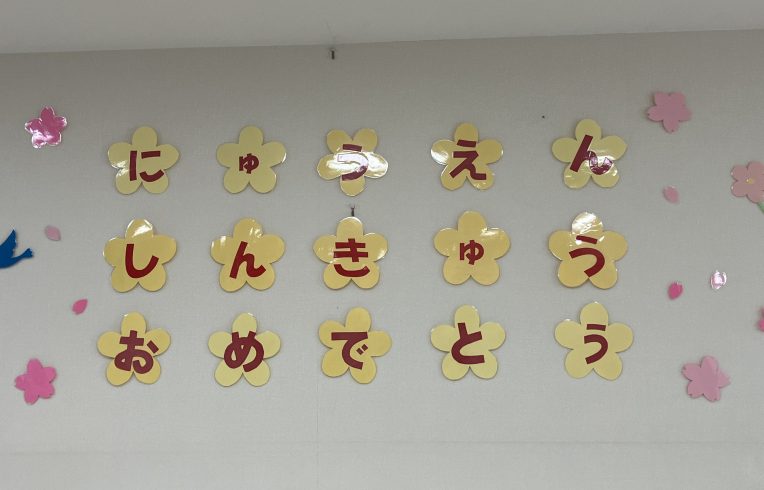 にゅうえん
しんきゅう
おめでとう